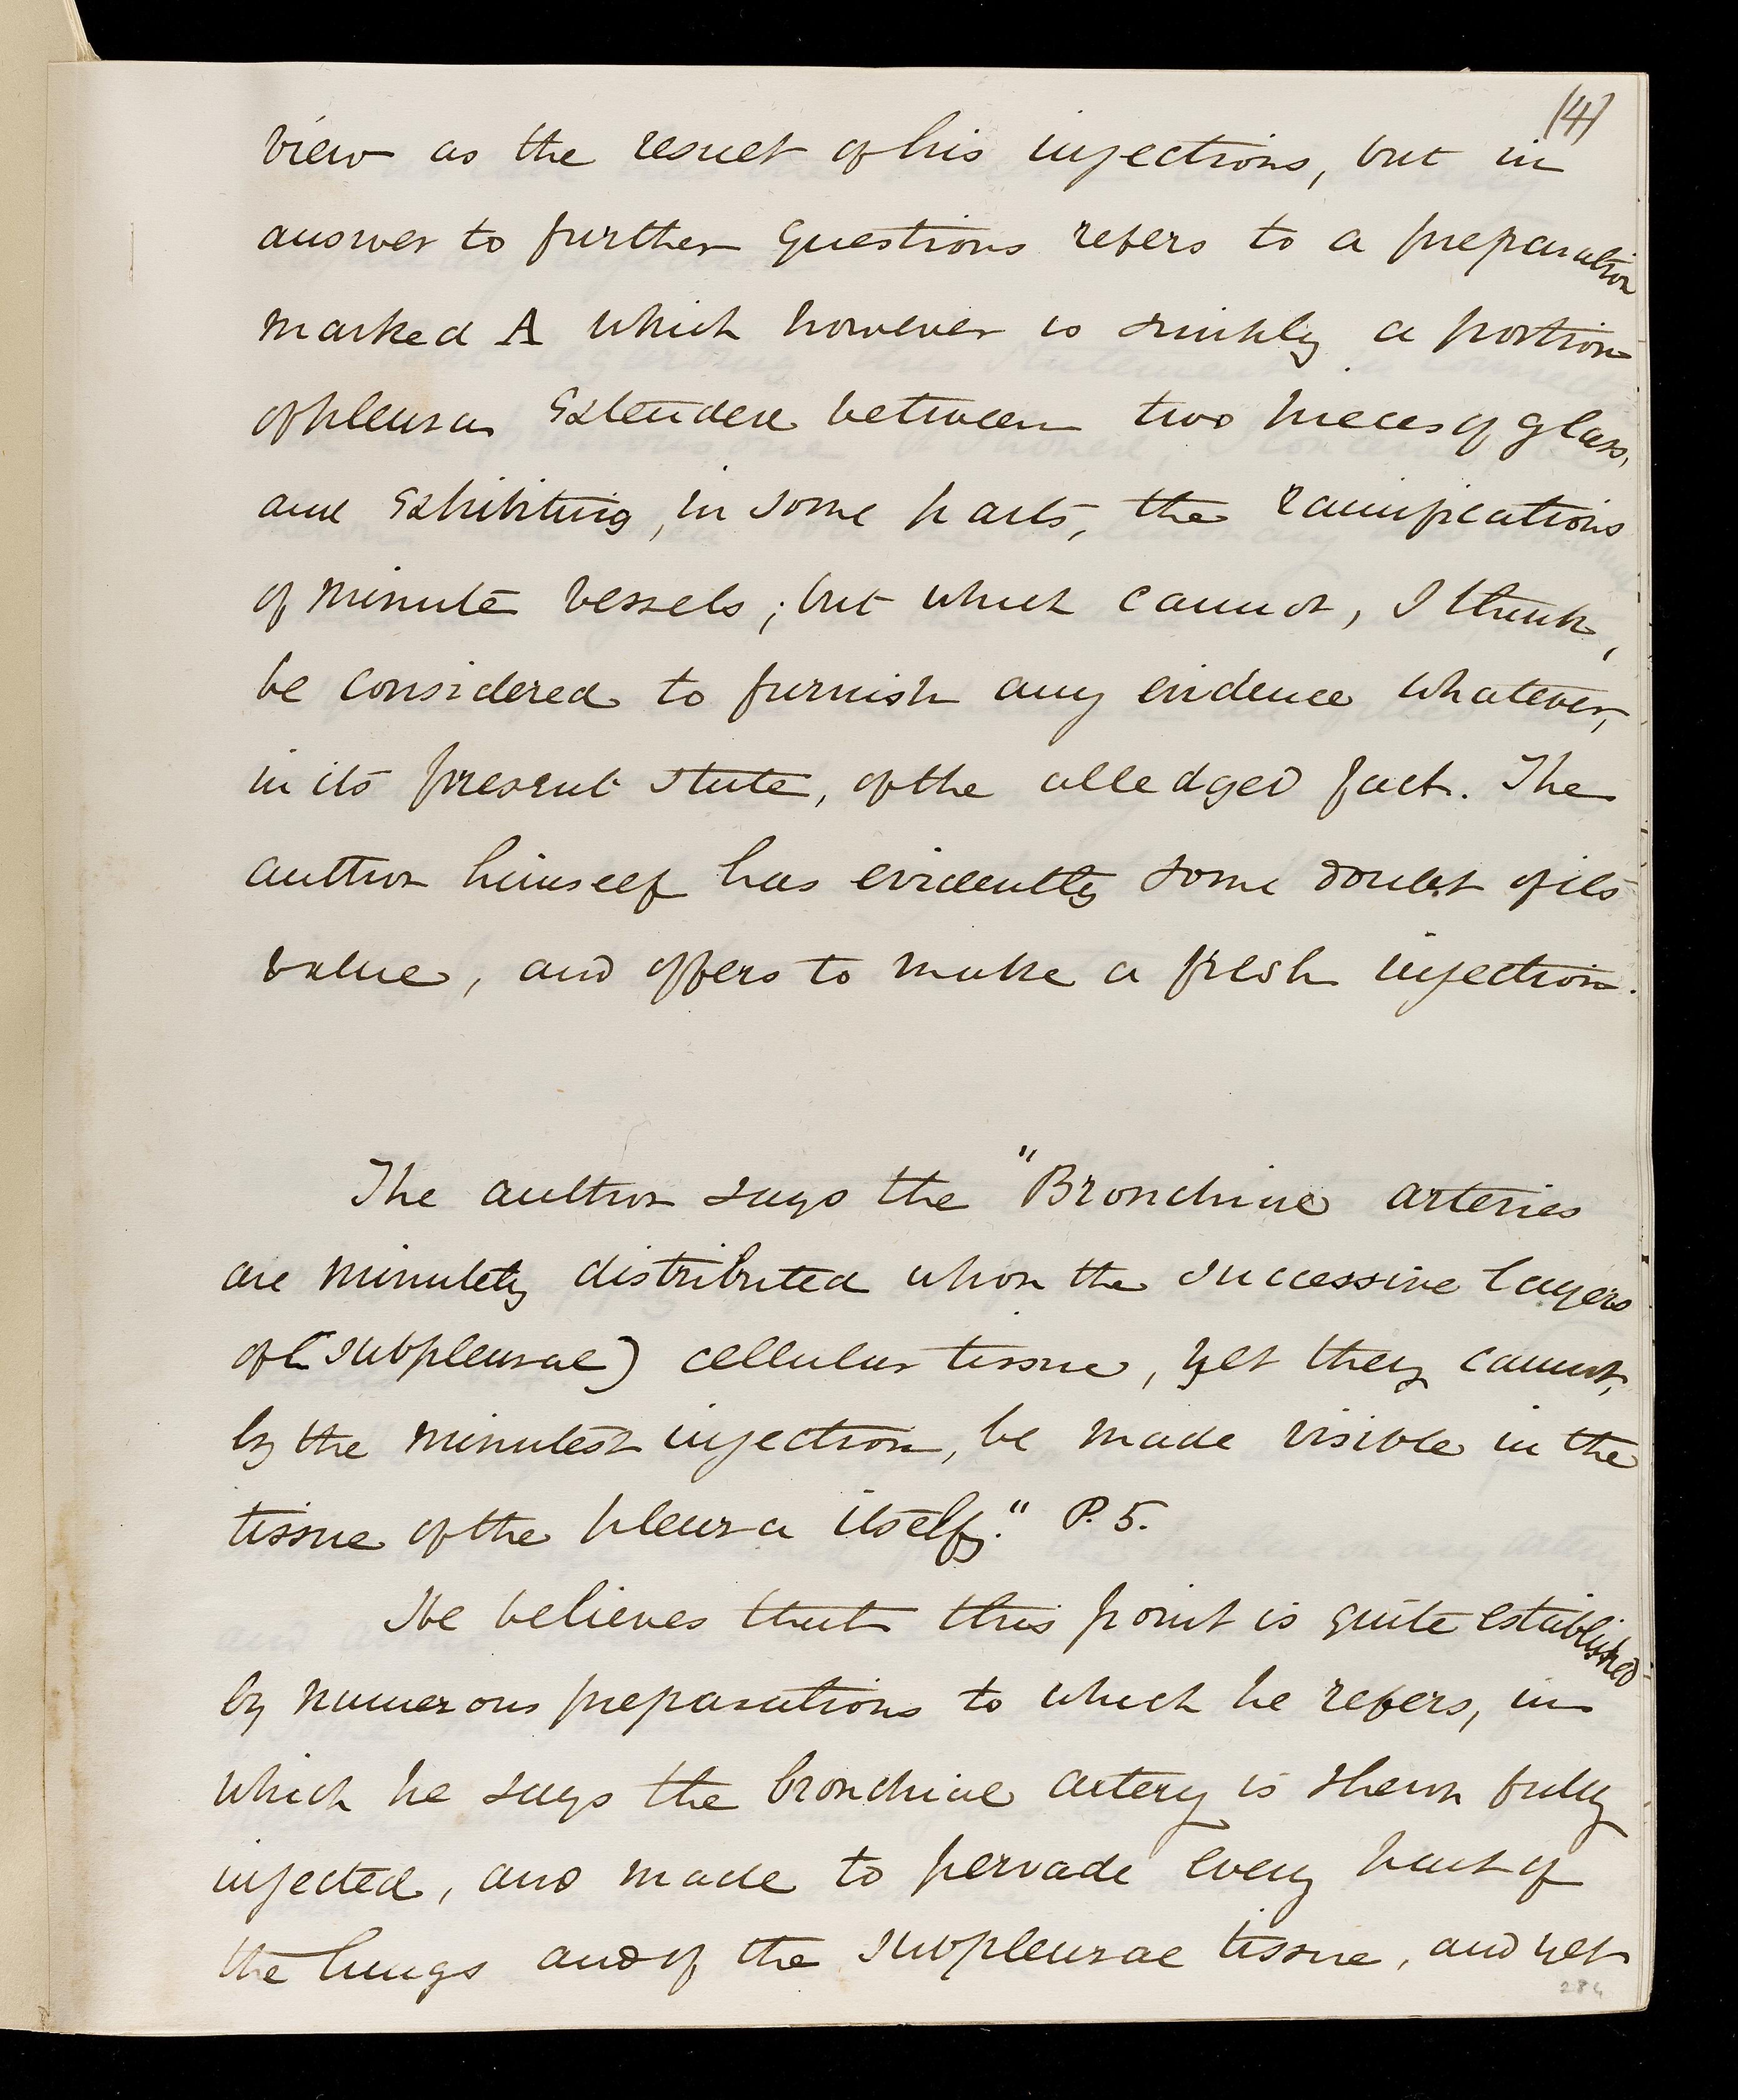 (4)
view as the result of his injections, but in
answer to further questions refers to a preparation
marked A which however is simply a portion
of pleura extended between two pieces of glass,
and exhibiting, in some parts, the ramifications
of minute vessels; but which cannot, I think,
be considered to furnish any evidence whatever,
in its present state, of the alledged fact. The
author himself has evidently some doubt of its
value, and offers to make a fresh injection.
The author says the "Bronchial arteries
are minutely distributed upon the successive layers
of (subpleural) cellular tissue, yet they cannot,
by the minutest injection, be made visible in the
tissue of the pleura itself." P. 5.
He believes that this point is quite established
by numerous preparations to which he refers, in
which he says the bronchial artery is shewn fully
injected, and made to pervade every part of
the lungs and of the subpleural tissue, and yet
284